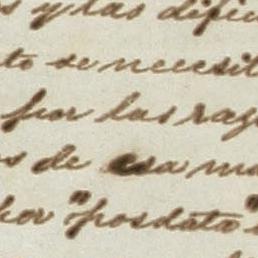 s y las dific
to se necesit
por las raz
s de esa ma
por "posdata"